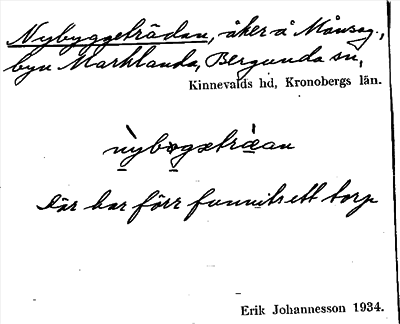 Nybyggeträdan, åker å Månsag.,
byn Marklanda, Bergunda sn,
Kinnevalds hd, Kronobergs län.
Där har förr funnits ett torp
Erik Johannesson 1934.